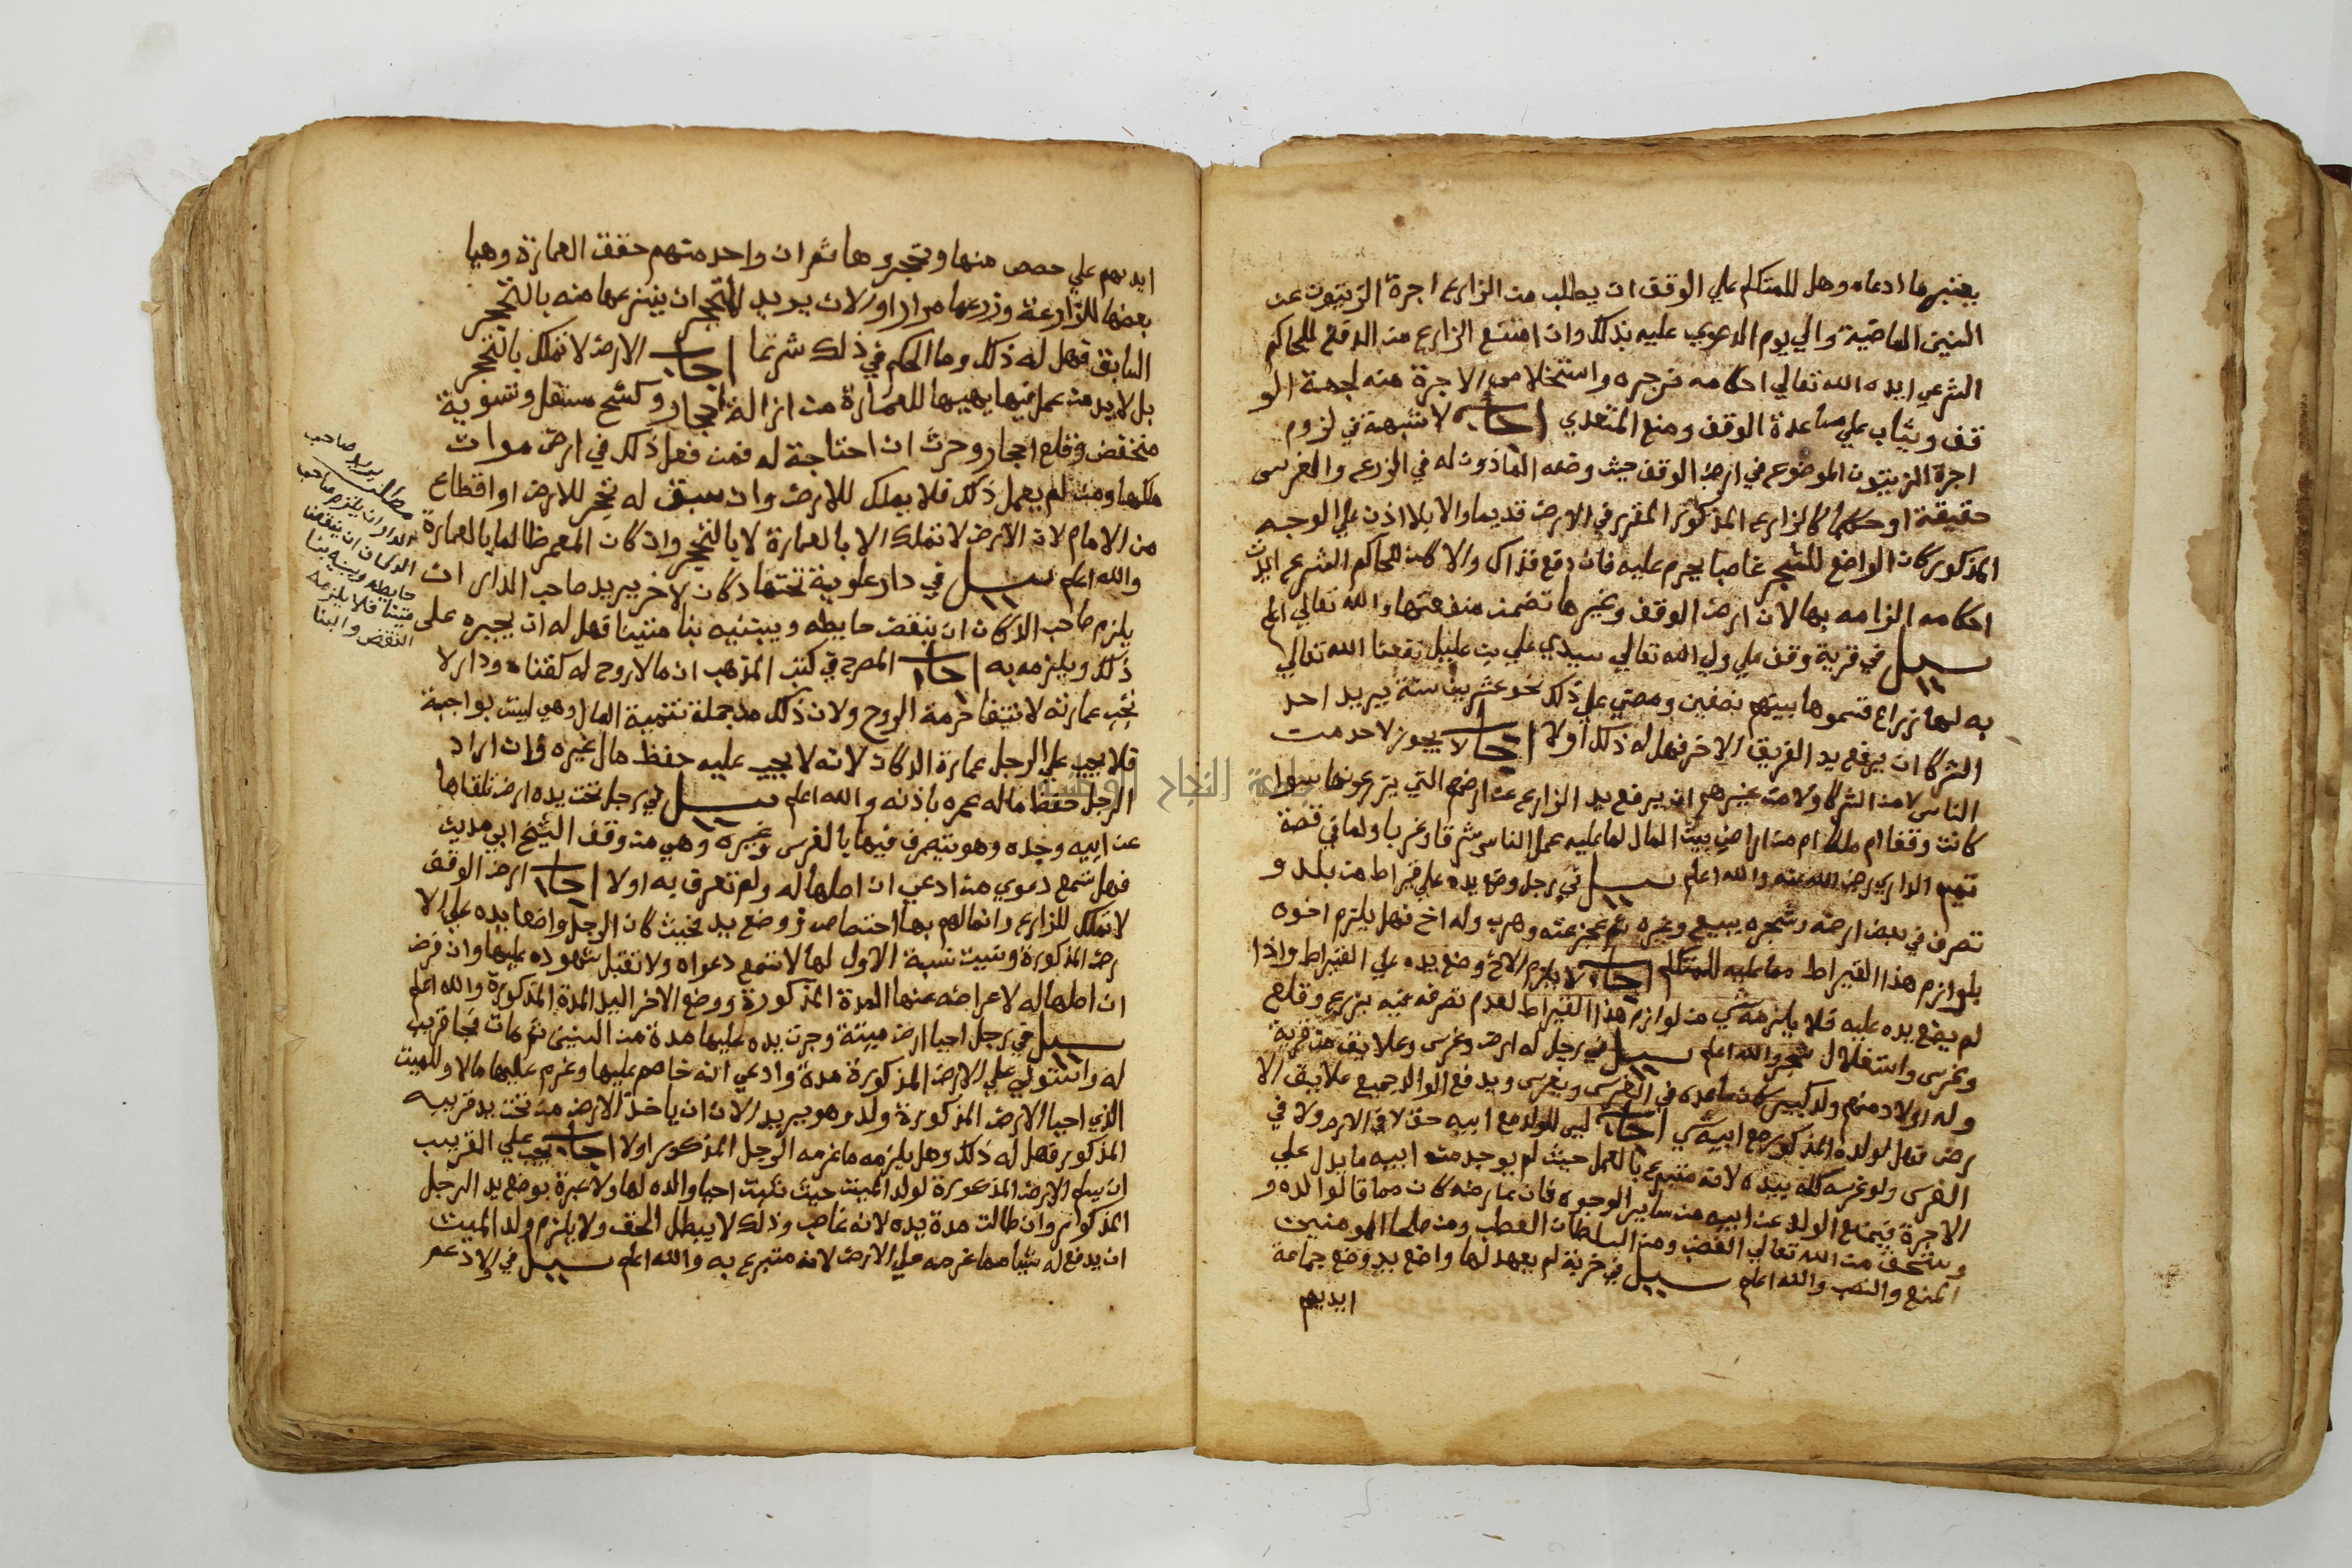 يعتبر ما ادعاه وهل للمتكلم علي الوقف ان يطلب من الزارع اجرة الزيتون عن
السنين الماضية والي يوم الدعوي عليه بذلك وان امتنع الزارع من الدفع للحاكم
الشرعي ايده الله تعالي احكامه زجره واستخلاص الاجرة منه لجهة الو
قف ويثاب علي مساعدة الوقف ومنع المتعدي اجاب لا شبهة في لزوم
اجرة الزيتون الموضوع في ارض الوقف حيث وضعه الماذون له في الزرع والغرس
حقيقة او حكما كالزارع المذكور المقرر في الارض قديما والا بلا اذن علي الوجه
المذكور كان الواضع للشجر غاصبا يحرم عليه فان دفع فذاك والا كان للحاكم الشرعي ايدت
احكامه الزامه بها لان ارض الوقف وغيرها تضمن منفعتها والله تعالي اعلم
سيل في قرية وقف علي ولي الله تعالي سيدي علي بن عليل نفعنا الله تعالي
به لها زراع قسموها بينهم نصفين ومضي علي ذلك نحو عشرين سنة يريد احد
الشركا ان يرفع يد الفريق الاخر فهل له ذلك اولا اجاب لا يجوز لاحد من
الناس لا من الشركا ولا من غيرهم ان يرفع يد الزارع عن ارضهم التي يزرعونها سوا
كانت وقفا ام ملكا ام من اراضي بيت المال لما عليه عمل الناس شرقا وغربا ولما في قصة
تميم الداري رضي الله عنه والله اعلم سيل في رجل وضع يده علي قيراط من بلد و
تصرف في بعض ارضه وشجره ببيع وغيره ثم عجز عنه وهرب وله اخ فهل يلزم اخوه
بلوازم هذا القيراط مما عليه للمتكلم اجاب لا يلزم الاخ وضع يده علي القيراط واذا
لم يضع يده عليه فلا يلزمه شي من لوازم هذا القيراط لعدم تصرفه فيه بزرع وقلع
وغرس واستغلال شجر والله اعلم سيل في رجل له ارض وغرس وعلايق من قرية
وله اولاد منهم ولد كبير كان ساعده في الغرس ويغرس ويدفع الوالد جميع علايق الا
رض فهل لولده المذكور مع ابيه شي اجاب ليس للولد مع ابيه حق لا في الارض ولا في
الغرس ولو غرسه كله بيده لانه متبرع بالعمل حيث لم يوجد من ابيه ما يدل علي
الاجرة فيمنع الولد عن ابيه من ساير الوجوه فان عارضه كان مما قالوا لده و
يستحق من الله تعالي الغضب ومن السلطان العطب ومن صلحا المومنين
المنع والنصب والله اعلم سيل في خربة لم يعهد لها واضع يد وضع جماعة
ايديهم
ايديهم علي حصص منها وتحجروها ثم ان واحد منهم حقق العمارة وهيا
بعضها للزارعة وزرعها مرارا والان يريد المتحجر ان ينزعها منه بالتحجر
السابق فهل له ذلك وما الحكم في ذلك شرعا اجاب الارض لا تملك بالتحجر
بل لا بد من عمل فيها يهيها للعمارة من ازالة احجار وكشح مستعل وتسوية
منخفض وقلع احجار وحرث ان احتاجة له فمن فعل ذلك في ارض موات
ملكها ومن لم يعمل ذلك فلا يملك للارض وان سبق له تحجر للارض او اقطاع
من الامام لان الارض لا تملك الا بالعمارة لا بالتحجر وان كان المعمر ظالما بالعمارة
والله اعلم سيل في دار علوية تحتها دكان لاخر يريد صاحب الدار ان
يلزم صاحب الدكان ان ينقض حايطه ويبتنيه بنا متينا فهل له ان يجبره علي
ذلك ويلزمه به اجاب المصرح في كتب المذهب ان ما لا روح له كقناه ودار لا
تجب عمارته لانتفا حرمة الروح ولان ذلك من جملة تنمية المال وهي ليست بواجبة
فلا يجب علي الرجل عمارة الدكان لانه لا يجب عليه حفظ مال غيره وان اراد
الرجل حفظ ماله عمره باذنه والله اعلم سيل في رجل تحت يده ارض تلقاها
عن ابيه وجده وهو يتصرف فيها بالغرس وغيره وهي من وقف الشيخ ابي مدين
فهل تسمع دعوي من ادعي ان اصلها له ولم تعرف به اولا اجاب ارض الوقف
لا تملك للزارع وانما لهم بها اختصاص ووضع يد فحيث كان الرجل واضعا يده علي الا
رض المذكورة ونسيت نسبة الاول لها لا تسمع دعواه ولا تقبل شهوده عليها وان فرض
ان اصلها له لاعراضه عنها المدة المذكورة ووضع الاخر اليد المدة المذكورة والله اعلم
سيل في رجل احيا ارض ميتة وجرت يده عليها مدة من السنين ثم مات فجا قريب
له واستولي علي الارض المذكورة مدة وادعي انه خاصم عليها وغرم عليها مالا وللميت
الذي احيا الارض المذكورة ولد وهو يريد الان ان ياخذ الارض من تحت يد قريبه
المذكور فهل له ذلك وهل يلزمه ما غرمه الرجل المذكور اولا اجاب يجب علي القريب
ان يسلم الارض المذكورة لولد الميت حيث ثبت احيا والده لها ولا عبرة بوضع يد الرجل
المذكور وان طالت مدة يده لانه غاصب وذلك لا يبطل الحق ولا يلزم ولد الميت
ان يدفع له شيا مما غرمه علي الارض لانه متبرع به والله اعلم سيل في الادعي
مطلب يريد صاحب
الدار ان يلزم صاحب
الدكان ان ينقضنا
حايطه ويبنيه بنا
متينا فلا يلزمه
النقض والبنا
جامعة النجاح الوطنية